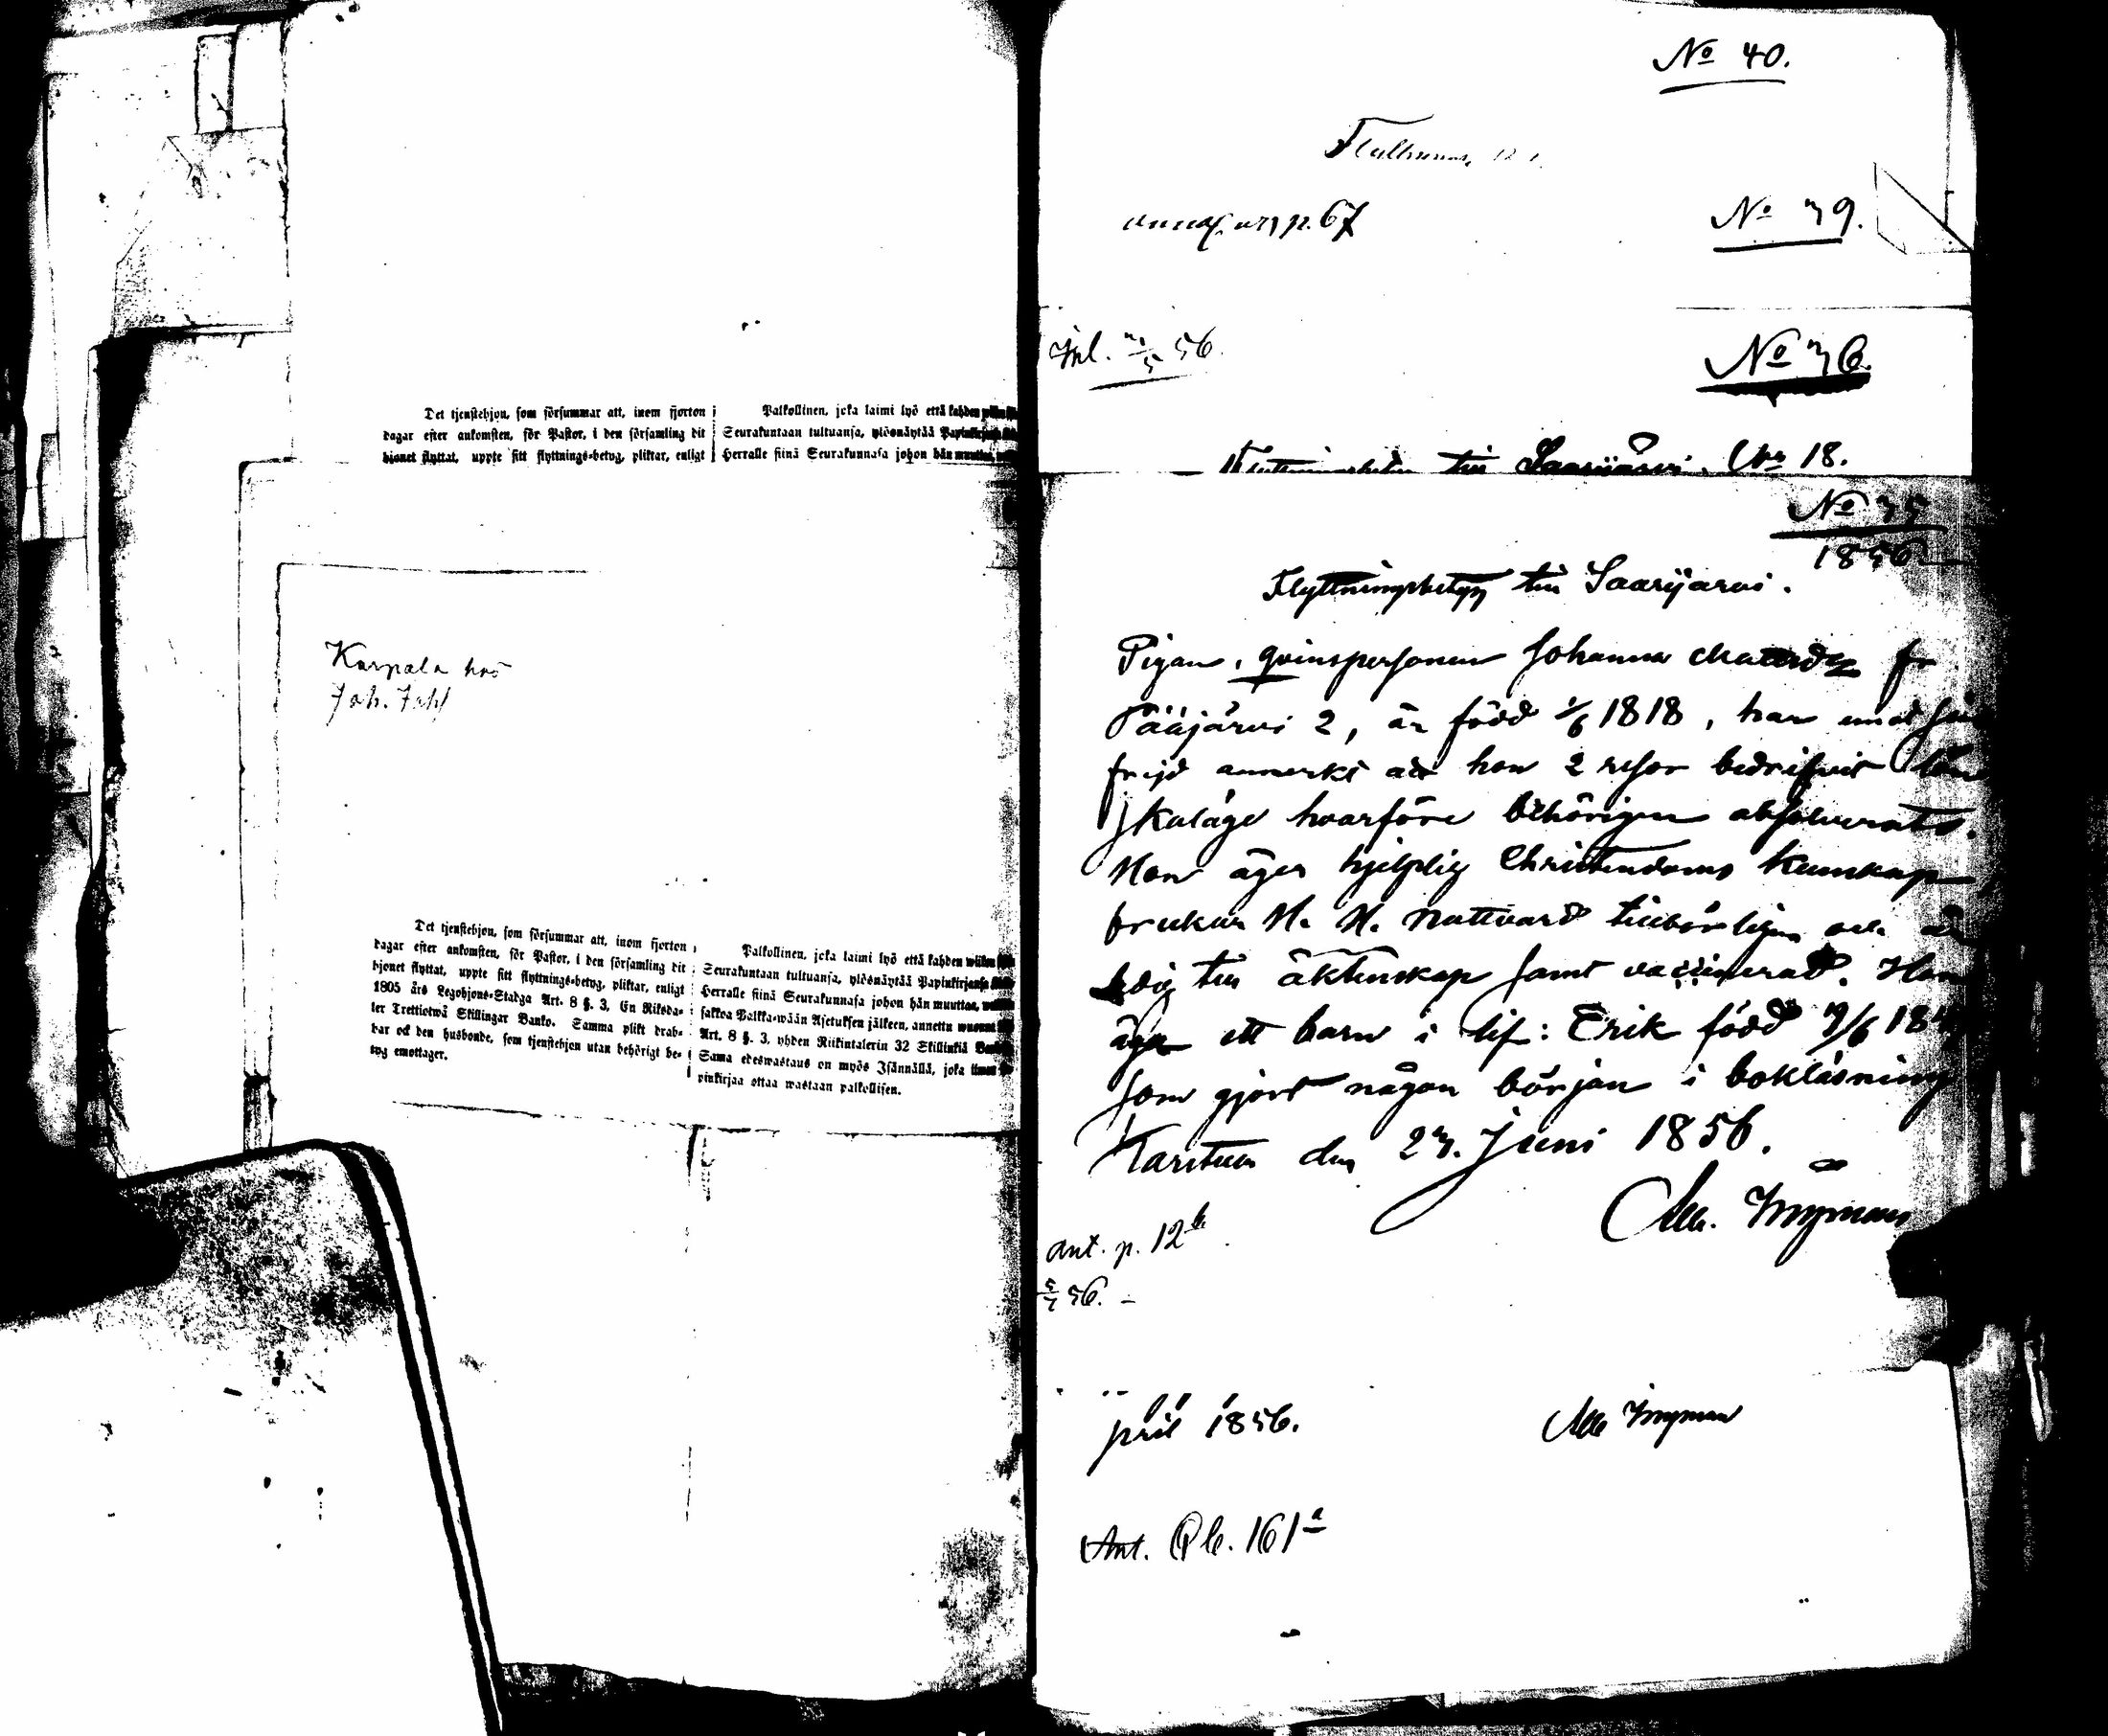 Det tjenstehjon, som försummar att, inom fjorton
dagar efter ankomsten, för Pastor, i den församling dit
hjonet flyttat, uppte sitt flyttnings-betyg, pliktar, enligt
Palkollinen, joka laimi lyö että kahden
Seurakuntaan tultuansa, ylösnäytää
Herralle siinä Seurakunnasa johon hän muuttaa,
Karpala hos
Joh. Joh
Det tjenstehjon, som försummar att, inom fjorton
dagar efter ankomsten, för Pastor, i den församling dit
hjonet flyttat, uppte sitt flyttnings-betyg, pliktar, enligt
1805 års Legohjons-Stadga Art. 8 §. 3, En Riksda-
ler Trettiotwå Skillingar Banko. Samma plikt drab-
bar ock den husbonde, som tjenstehjon utan behörigt be-
tyg emottager.
Palkollinen, joka laimi lyö että kahden wiikon
Seurakuntaan tultuansa, ylösnäytää Papinkirjansa
Herralle siinä Seurakunnasa johon hän muuttaa,
sakkoa Palkka-wään Asetuksen jälkeen, annettu wuonna
Art. 8 §. 3, yhden Riikintalerin 32 Skillinkiä
Sama edeswastaus on myös Isännällä, joka ilman
pinkirjaa ottaa wastaan palkollisen.
No 40.
p. 67
No 39.
Inl. 56.
No 36.
Flyttningsbetyg till Saarijärvi. No 18.
No 35
1856
Flyttningsbetyg till Saarijärvi.
Pigan, qvinspersonen Johanna fr
Pääjärvi 2, är född 1/6 1818, har emot sin
frejd anmerkt att hon 2 resor bedrifvit löne
skaläge hvarföre behörigen absolverats.
Hon äger hjelplig Christendoms kunskap
brukar H. H. Nattvard tillbörligen och är
ledig till äktenskap samt vaccinerad. Hon
äger ett barn i lif: Erik född 18
som gjort någon början i bokläsning
Karstula den 23. Juni 1856.
Ingman
Ant. p. 12 b
5/7 56. -
pril 1856.
Ingman
Ant. Pb. 161 a